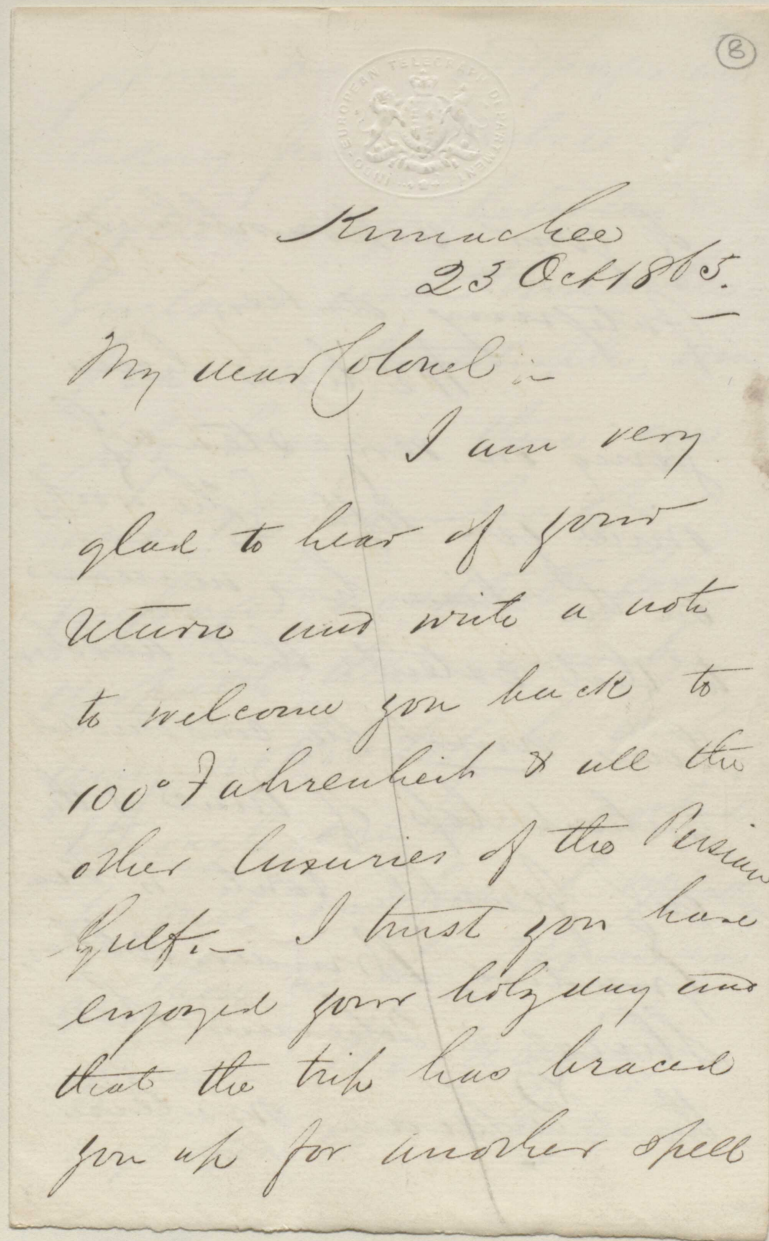 8
INDO-EUROPEAN TELEGRAPH DEPARTMENT
Kurrachee
23 Oct 1865.
My dear Colonel :-
I am very
glad to hear of your
return and write a note
to welcome you back to
100° Fahrenheit & all the
other luxuries of the Persian
Gulf. - I trust you have
enjoyed your holyday and
that the trip has braced
you up for another spell